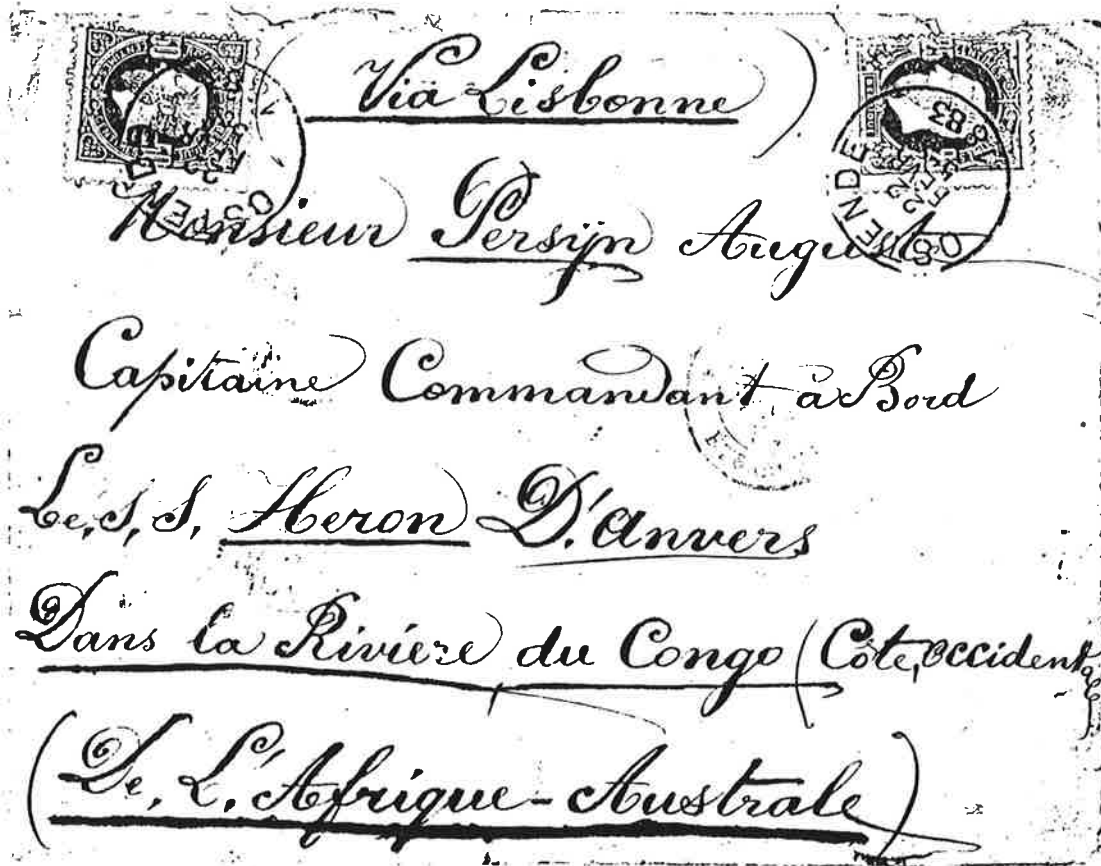 (Via Lisbonne)
OSTENDE
OSTENDE 22 FEVR 83
Monsieur Persijn August
Capitaine Commandant à Bord
Le, S, S, Heron D'.anvers
Dans la Rivière du Congo (Côte, occidentale
(De, L'.Afrique-Australe)